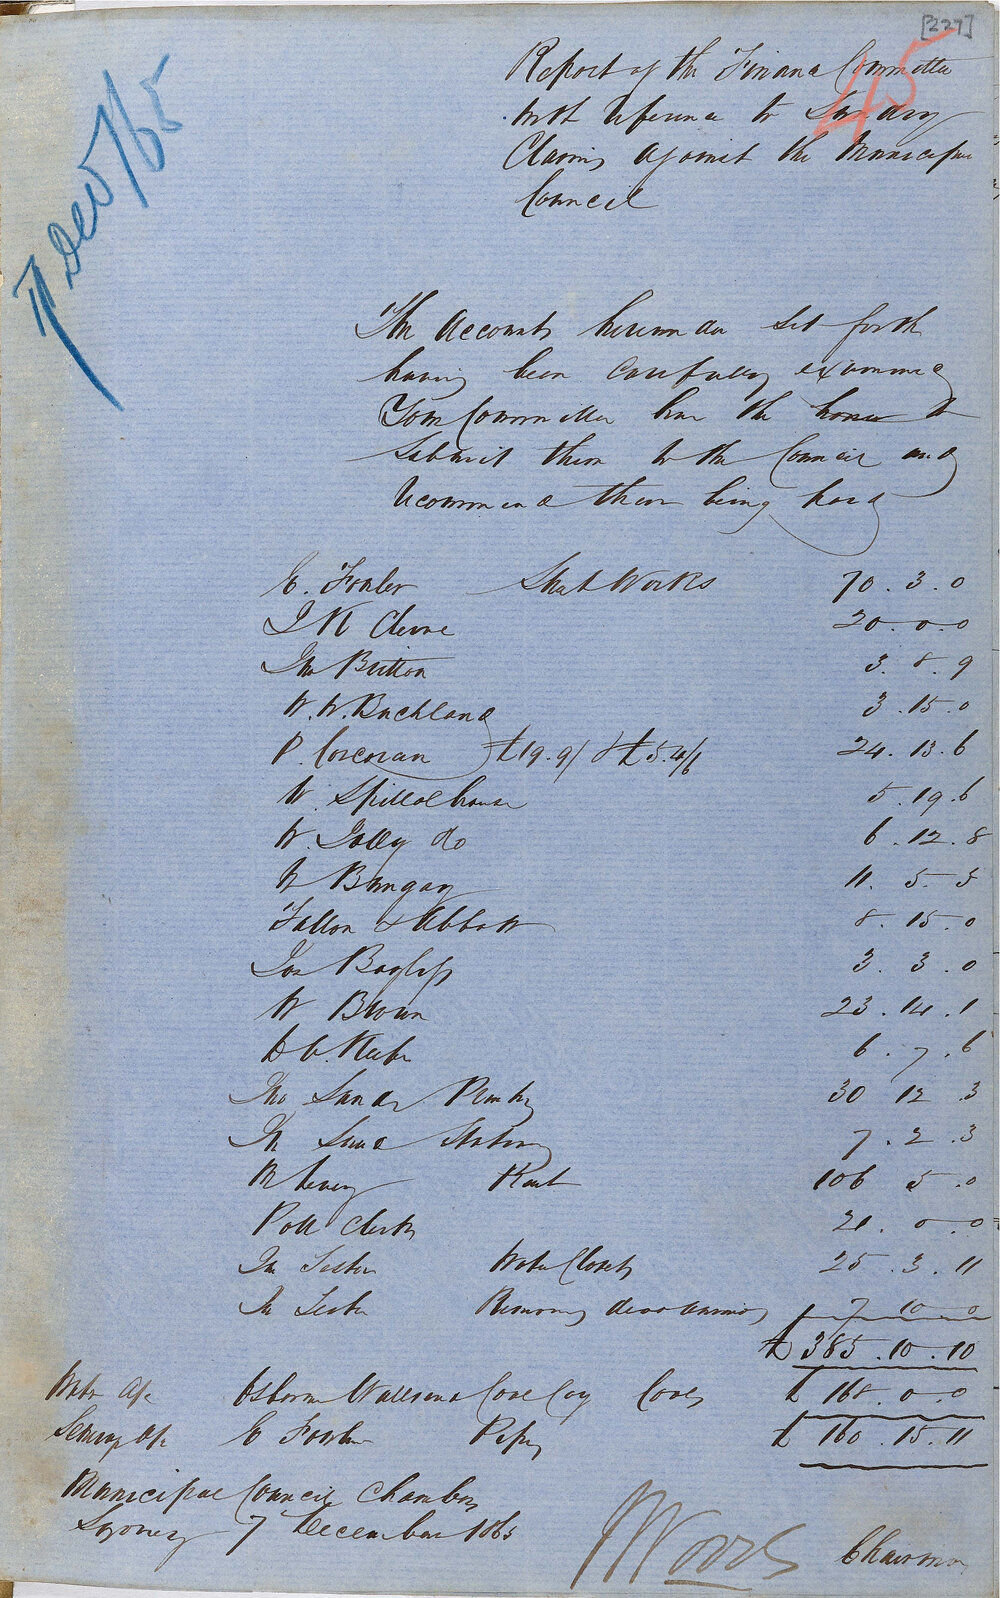 [227]
45
7 Decr/65
Report of the Finance Committee
with reference to Sundry
Claims against the Municipal
Council
The Accounts hereunder set forth
having been carefully examined
Your Committee have the honor to
submit them to the Council and
recommend them being paid
E. Fowler Street Works 70.3.0
J K Cleeve 20.0.0
Jno Britton 3.8.9
W.W. Buckland 3.15.0
P. Corcoran £19.9/ & £5.4/6 24.13.6
W. Spillolhouse 5.19.6
W. Jolly & Co 6.12.8
W Bungay 11.5.5
Fallon & Abbott 8.15.0
Jas Bayliss 3.3.0
W Brown 23.14.1
6.7.6
Jno Sands 30.12.3
Jno Sands Stationy 7.2.3
M Levey Rent 106.5.0
Poll Clerks 21.0.0
Jno Lester Water Closets 25.3.11
Jno Lester Removing dead animals 7.10.0
£385.10.10
Water A/c Osborne Wallsend Coal Coy Coals £168.0.0
Sewerage A/c E Fowler Pipes £160.15.11
Municipal Council Chambers
Sydney 7 December 1865
Chairman